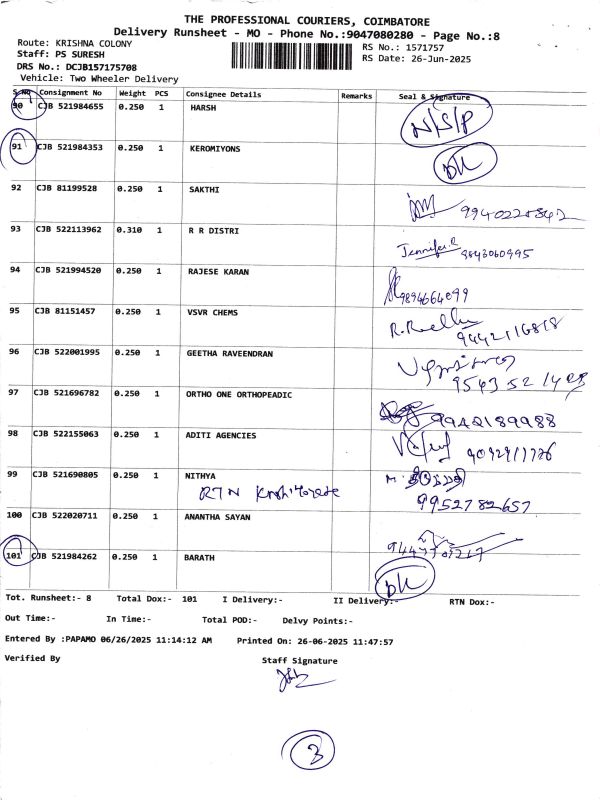 THE PROFESSIONAL COURIERS, COIMBATORE
Delivery Runsheet - MO - Phone No.:9047080280 - Page No.:8
Route: KRISHNA COLONY
Staff: PS SURESH
DRS No.: DCJB157175708
Vehicle: Two Wheeler Delivery
RS No.: 1571757
RS Date: 26-Jun-2025
S.No Consignment No Weight PCS Consignee Details Remarks Seal & Signature
90 CJB 521984655 0.250 1 HARSH N/S/P
91 CJB 521984353 0.250 1 KEROMIYONS DK
92 CJB 81199528 0.250 1 SAKTHI
93 CJB 522113962 0.310 1 R R DISTRI Jennifer.R 9843060995
94 CJB 521994520 0.250 1 RAJESE KARAN 9894664099
95 CJB 81151457 0.250 1 VSVR CHEMS 9442116818
96 CJB 522001995 0.250 1 GEETHA RAVEENDRAN
97 CJB 521696782 0.250 1 ORTHO ONE ORTHOPEADIC 9942189988
98 CJB 522155063 0.250 1 ADITI AGENCIES
99 CJB 521690805 0.250 1 NITHYA
RTN
9952782657
100 CJB 522020711 0.250 1 ANANTHA SAYAN
101 CJB 521984262 0.250 1 BARATH DK
Tot. Runsheet:- 8 Total Dox:- 101 I Delivery:- II Delivery:- RTN Dox:-
Out Time:- In Time:- Total POD:- Delvy Points:-
Entered By :PAPAMO 06/26/2025 11:14:12 AM Printed On: 26-06-2025 11:47:57
Verified By Staff Signature
3